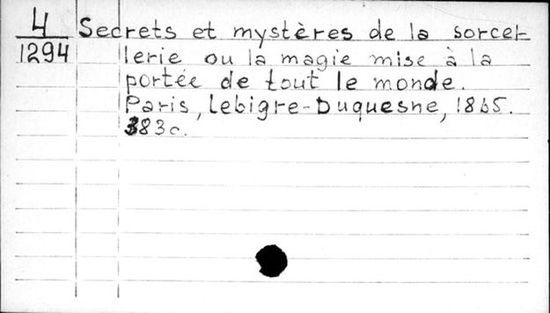 4 Secrets et mystères de la sorcel-
1294 lerie ou la magie mise à la
portée de tout le monde.
Paris, Lebigre-Duquesne, 1865.
383c.